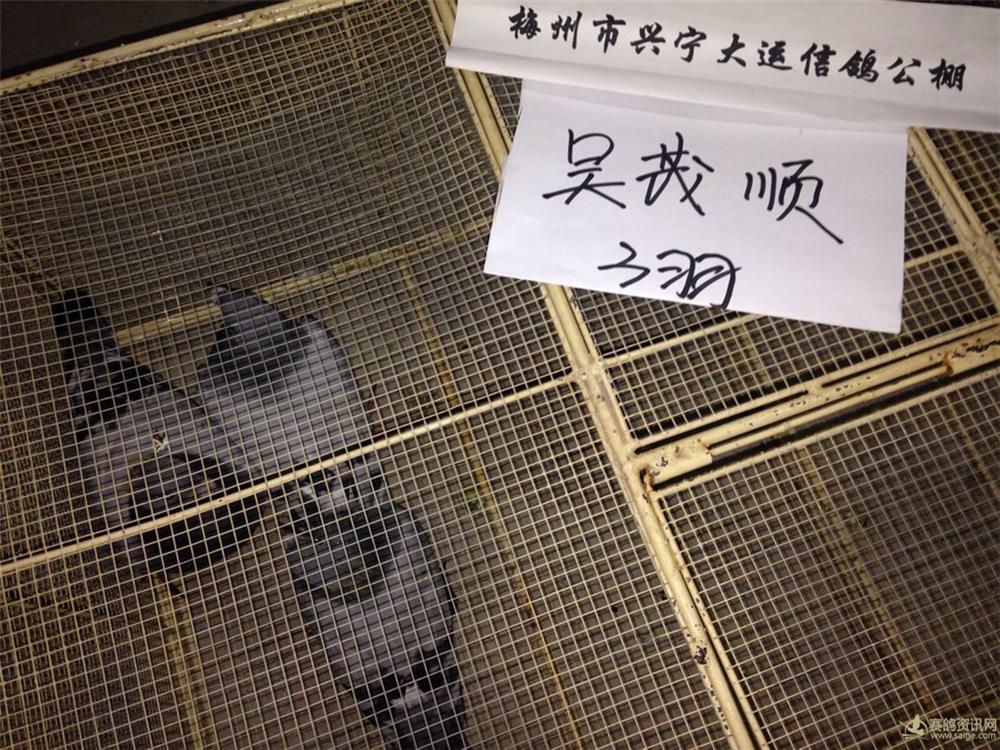 梅州市兴宁大运信鸽公棚
吴茂顺
3羽
赛鸽资讯网
www.saige.com